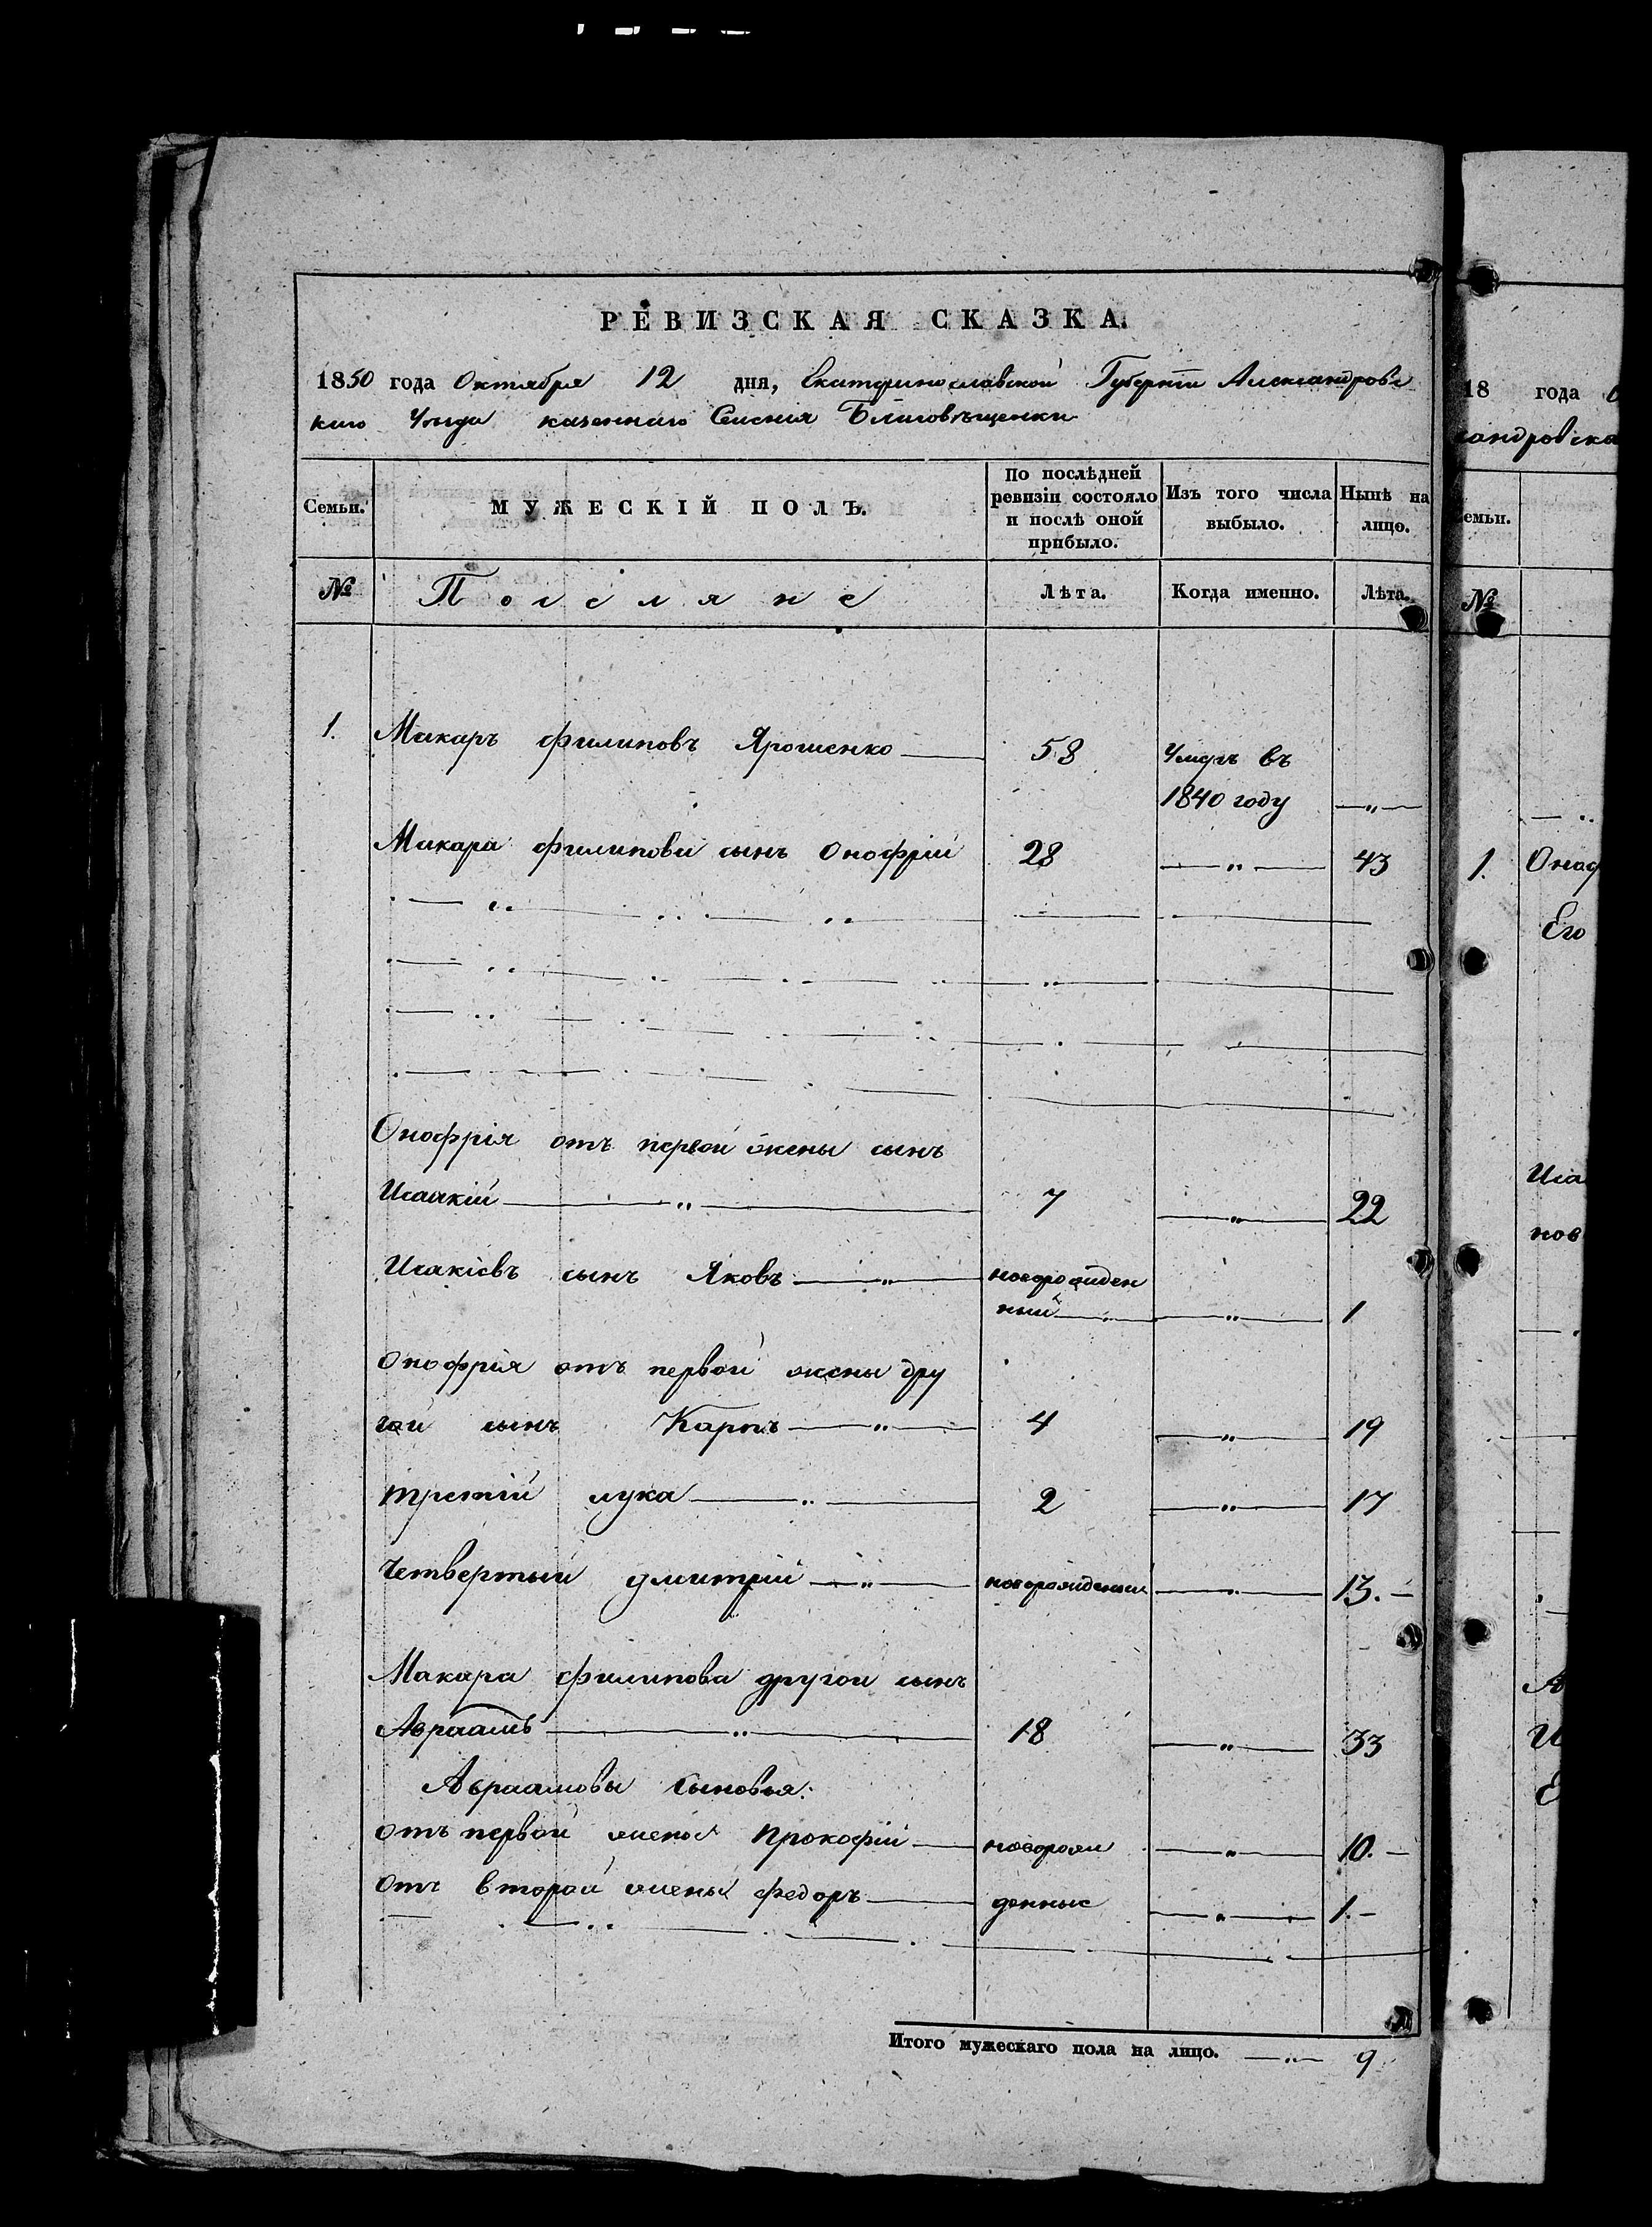 РЕВИЗСКАЯ СКАЗКА.
1850 года Октября 12 дня, Екатеринославской Губернии Александровс
каго Уезда казеннаго Селения Благовѣщенки
Семьи. МУЖЕСКІЙ ПОЛЪ. По послѣдней ревизіи состояло и послѣ оной прибыло. Изъ того числа выбыло. Нынѣ на лицо.
№ Поселяне Лѣта. Когда именно. Лѣта.
1. Макаръ Филиповъ Ярошенко 58 Умеръ въ
1840 году „
Макара Филипова сынъ Онофрій 28 „ 43
Онофрія отъ первой жены сынъ
Исаакій „ 7 „ 22
Исакіевъ сынъ Яковъ „ новорожден
ный „ 1
Онофрія отъ первой жены дру
гой сынъ Карпъ „ 4 „ 19
третій лука „ 2 „ 17
Четвертый дмитрій „ новорожденый „ 13.
Макара Филипова другой сынъ
Авраамъ „ 18 „ 33
Авраамовы Сыновья:
отъ первой жены Прокофій новорож „ 10.
отъ второй жены Федоръ денные „ 1.
Итого мужескаго пола на лицо. „ 9
18 года
сандровска
емьи.
№
1. Оноф
Его
Иса
нов